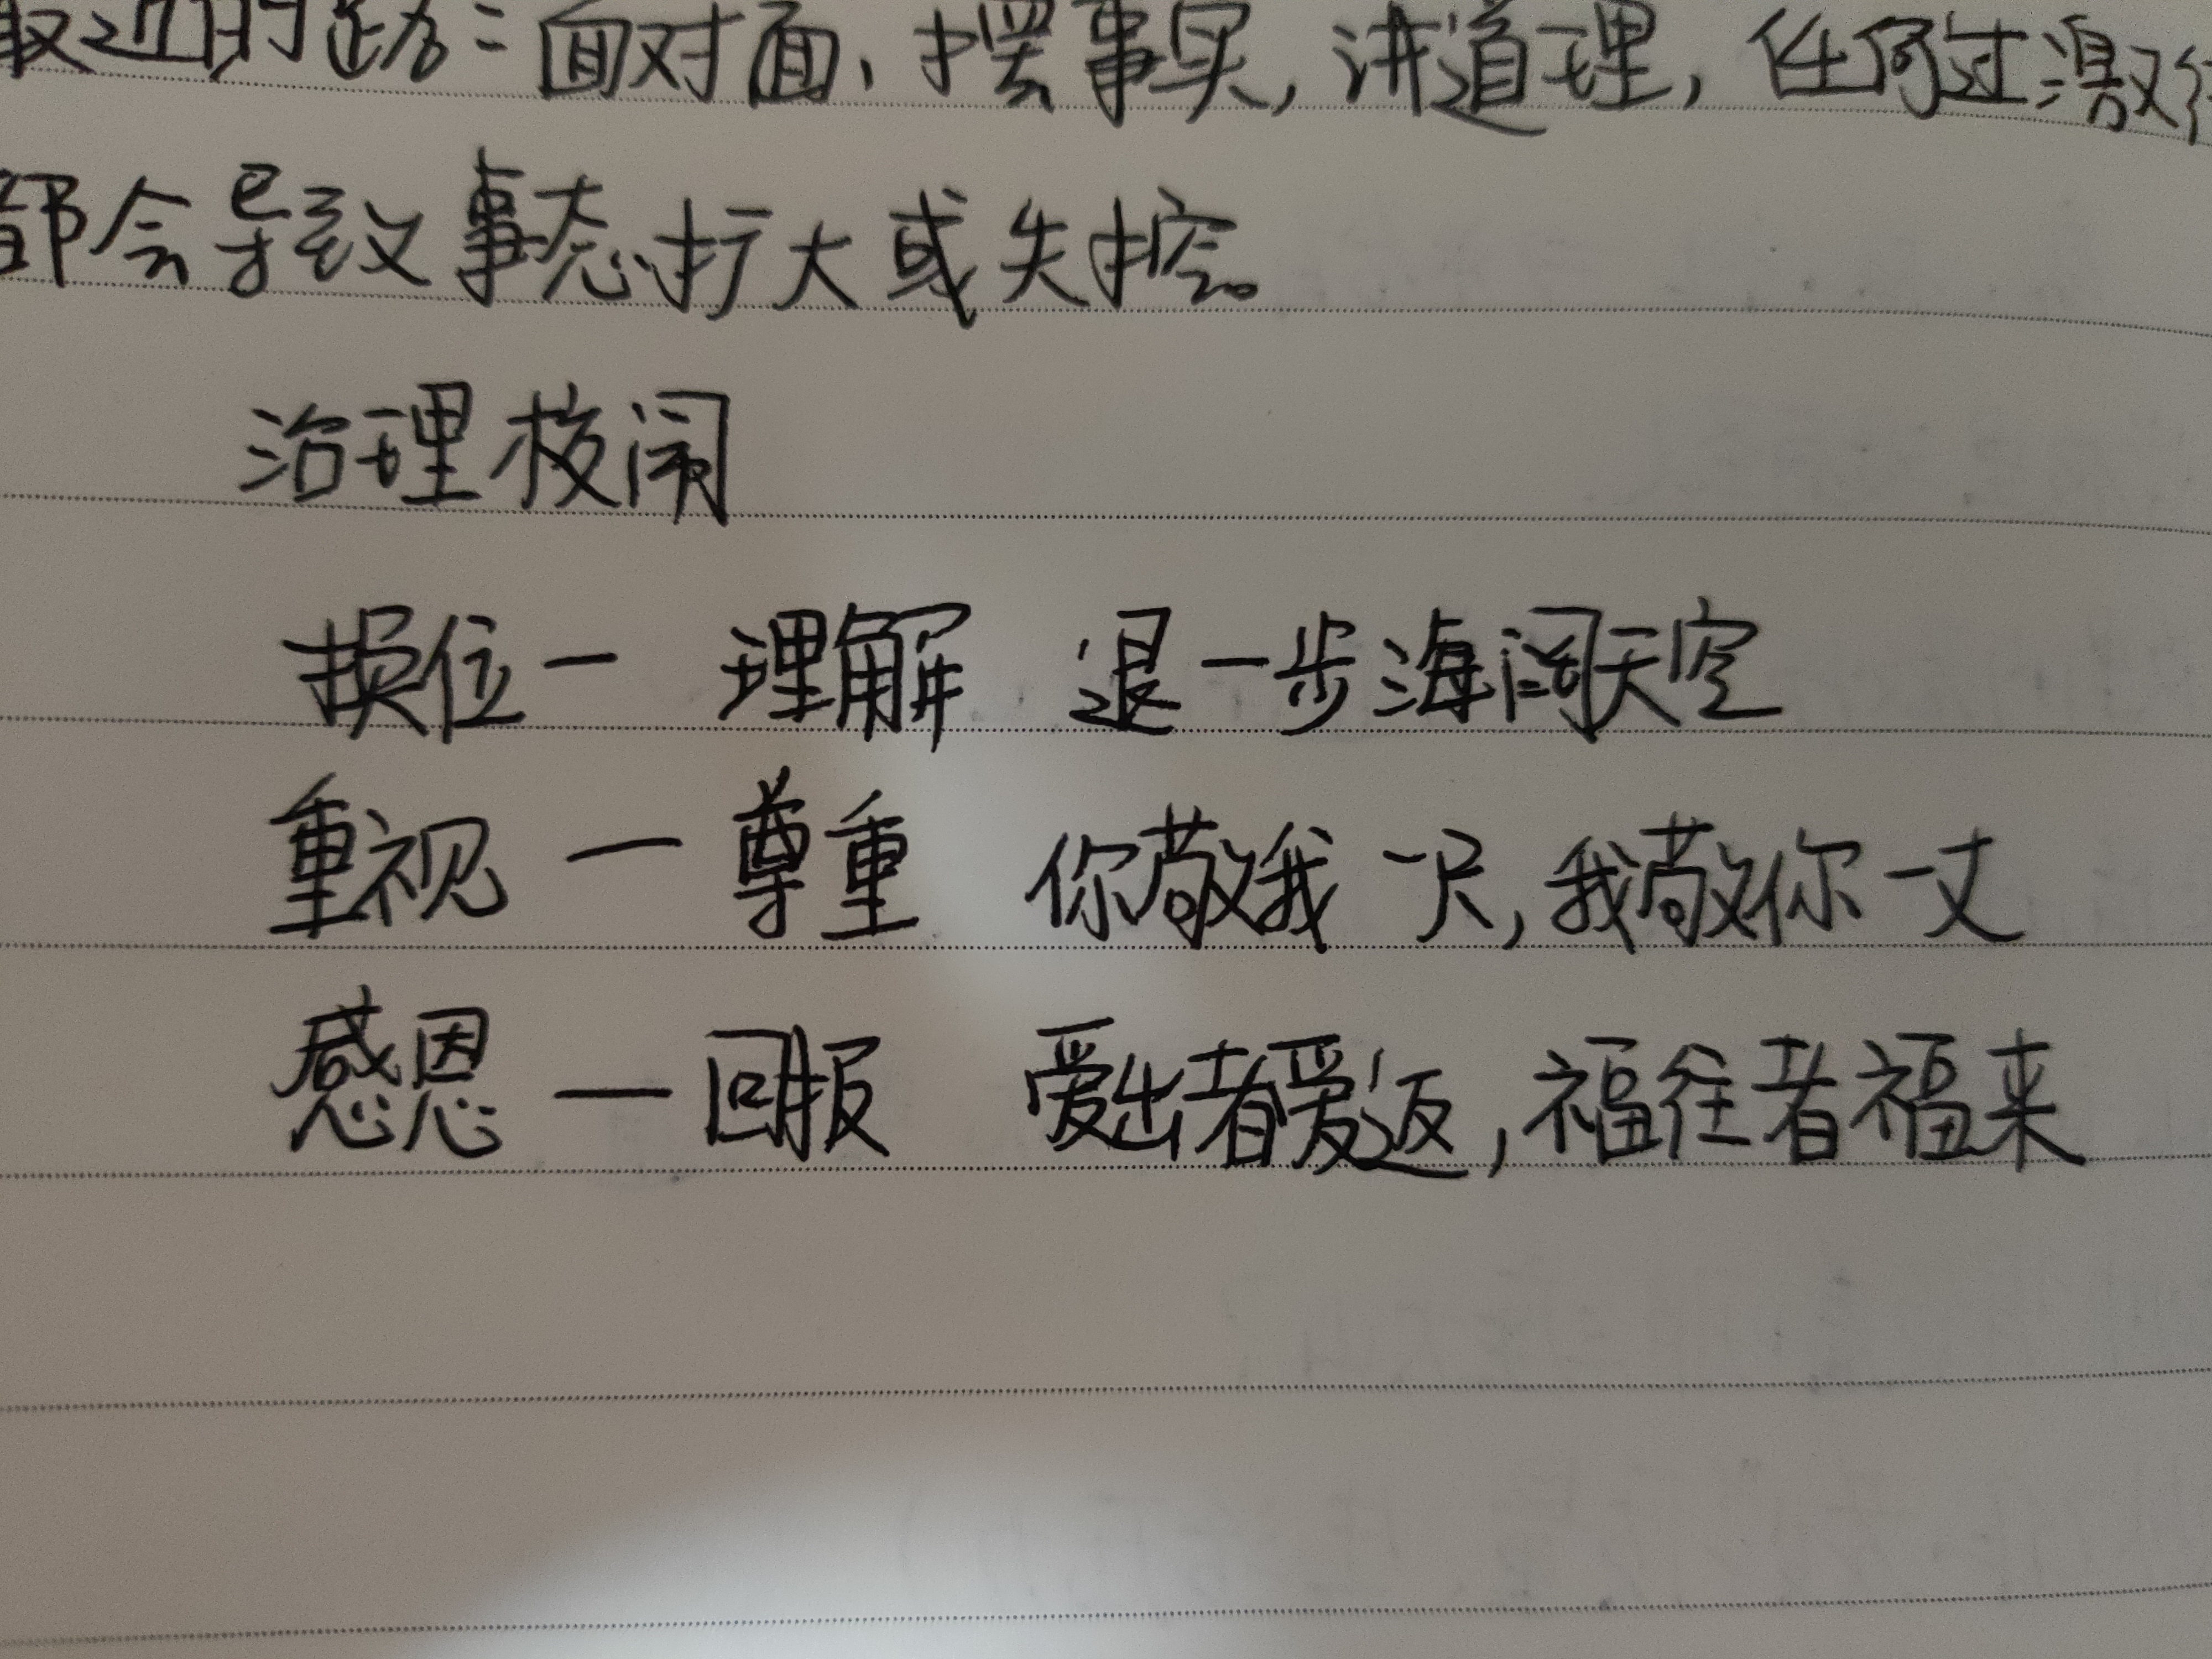 最近的路：面对面，摆事实，讲道理，任何过激
都会导致事态扩大或失控。
治理校闹
换位一 理解 退一步海阔天空
重视 一 尊重 你敬我一尺，我敬你一丈
感恩 一 回报 爱出者爱返，福往者福来